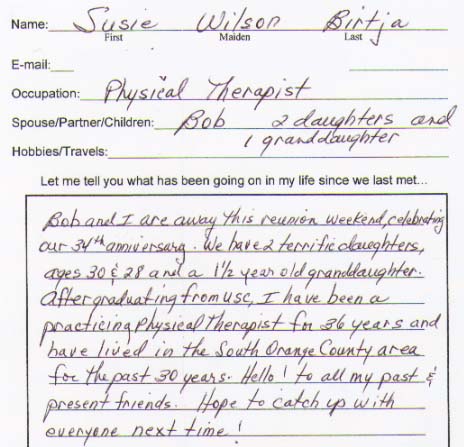 Name: Susie Wilson Birtja
First Maiden Last
E-mail:
Occupation: Physical Therapist
Spouse/Partner/Children: Bob 2 daughters and
1 granddaughter
Hobbies/Travels:
Let me tell you what has been going on in my life since we last met...
Bob and I are away this reunion weekend, celebrating
our 34th anniversary. We have 2 terrific daughters,
ages 30 & 28 and a 1 1/2 year old granddaughter.
After graduating from USC, I have been a
practicing Physical Therapist for 36 years and
have lived in the South Orange County area
for the past 30 years. Hello! to all my past &
present friends. Hope to catch up with
everyone next time!